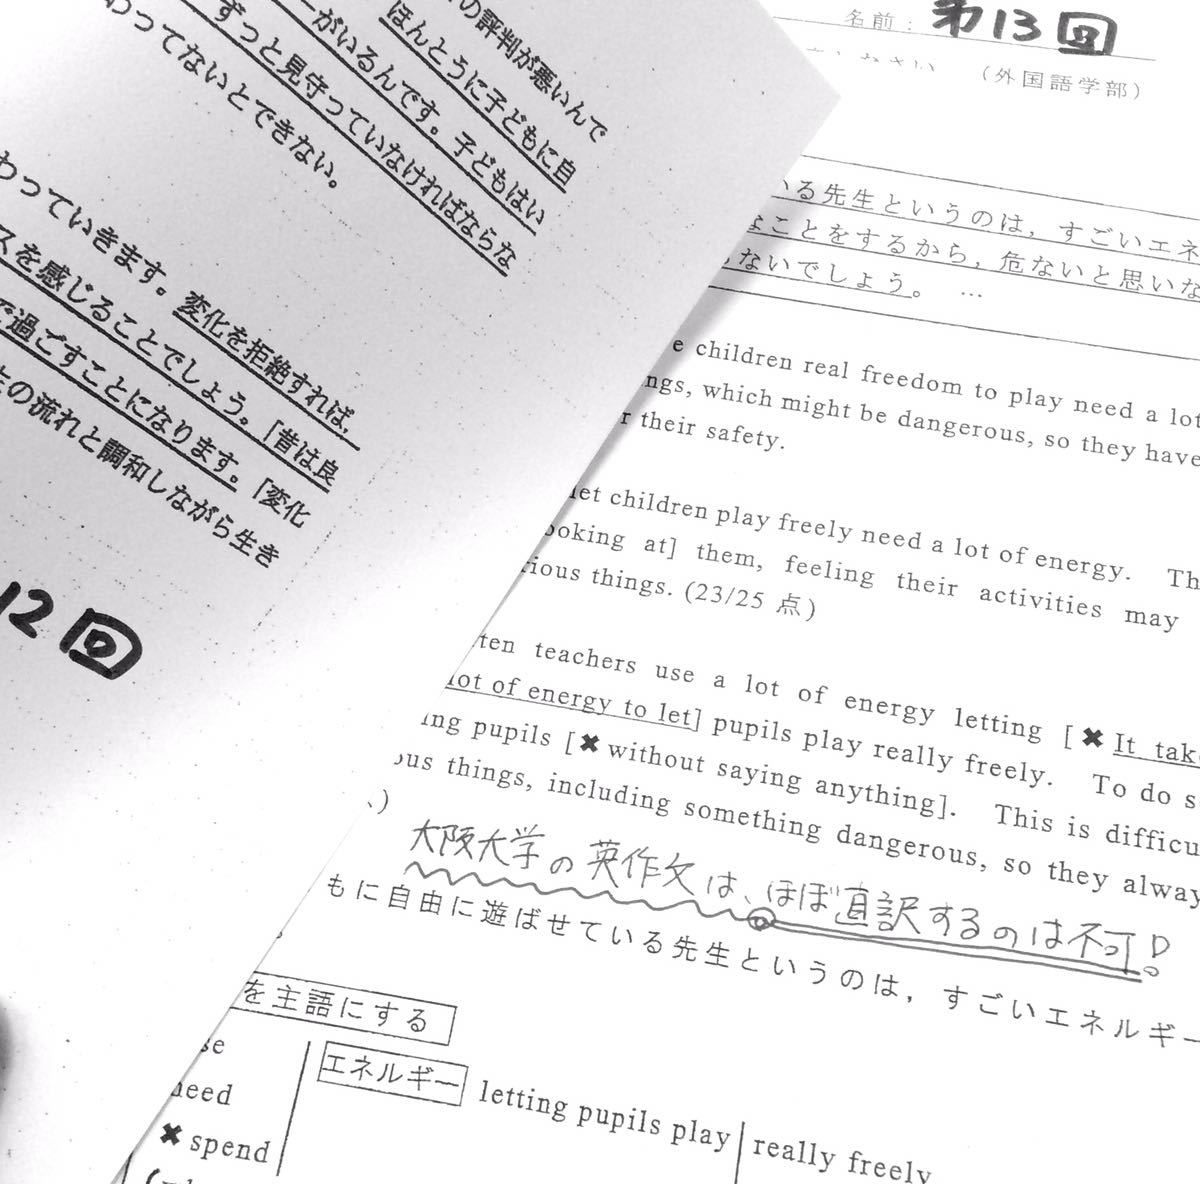 の評判が悪いんで
ほんとうに子どもに自
ーがいるんです。子どもはい
ずっと見守っていなければならな
わってないとできない。
わっていきます。変化を拒絶すれば,
スを感じることでしょう。「昔は良
で過ごすことになります。「変化
の流れと調和しながら生き
12回
名前: 第13回
(外国語学部)
いる先生というのは,すごいエネ
なことをするから,危ないと思いな
ないでしょう。 …
e children real freedom to play need a lot
ngs, which might be dangerous, so they have
r their safety.
let children play freely need a lot of energy. Th
ooking at] them, feeling their activities may
rious things. (23/25 点)
ten teachers use a lot of energy letting [✖It tak
lot of energy to let] pupils play really freely. To do s
ing pupils [✖without saying anything]. This is difficu
ous things, including something dangerous, so they alway
、)
大阪大学の英作文は、ほぼ直訳するのは不可!
もに自由に遊ばせている先生というのは,すごいエネルギー
を主語にする
se
need
✖spend
エネルギー letting pupils play really freely